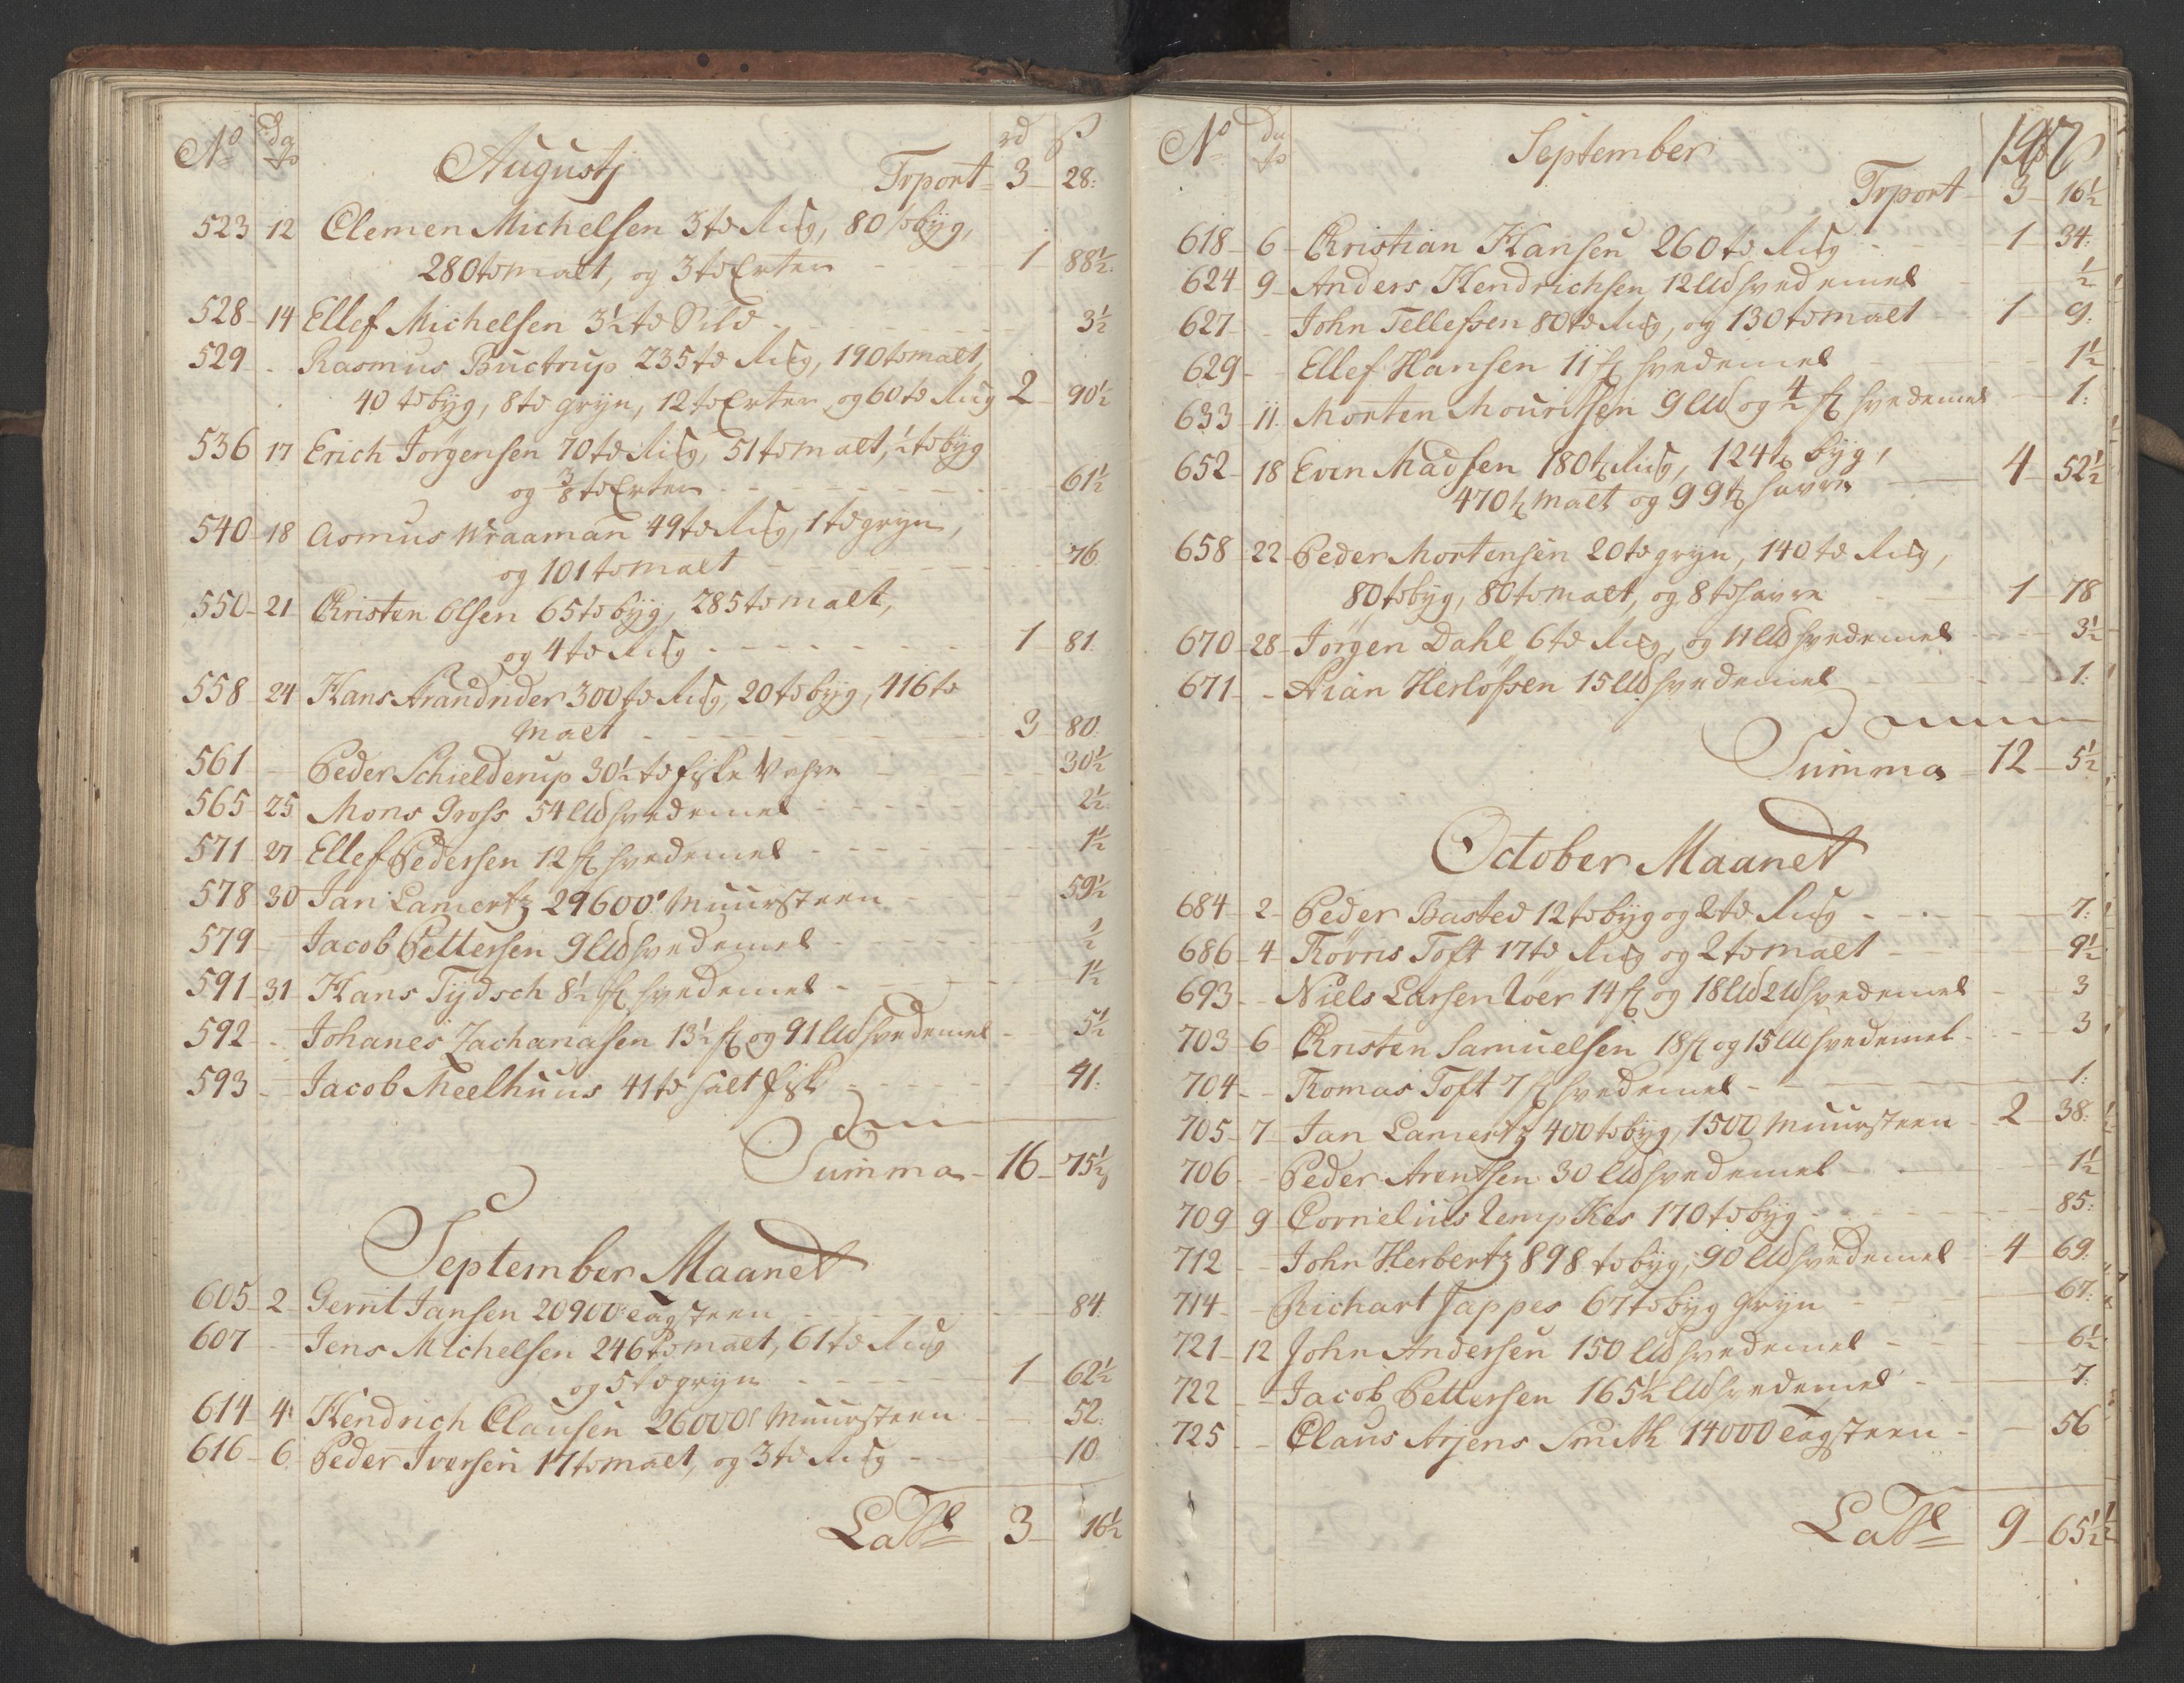 No dato Augustj rd ß
Trport 3 28:
523 12 Clemen Michelsen 3 td Rug, 80 td byg,
280 td malt, og 3 td Erter 1 88½
528 14 Ellef Michelsen 3½ td Sild 3½
529 Rasmus Buctrup 235 td Rug, 190 td malt,
40 td byg, 8 td gryn, 12 td Erter og 60 td Rug 2 90½
536 17 Erich Jørgensen 70 td Rug, 51 td malt, ½ td byg
og 3/8 td Erter 61½
540 18 Asmus Wraaman 49 td Rug, 1 td gryn,
og 101 td malt 76
550 21 Christen Olsen 65 td byg, 285 td malt,
og 4 td Rug 1 81
558 24 Hans 300 td Rug, 20 td byg, 416 td
malt 3 80
561 Peder Schielderup 30½ td fiske 30½
565 25 Mons Gross 54 Ld hvedemel 2½
571 27 Ellef Pedersen 12 hvedemel 1½
578 30 Jan Lamertz 29600 Muursteen 59½
579 Jacob Pettersen 9 Ld hvedemel ½
591 31 Hans Tydsch 8½ hvedemel 1½
592 Johanes Zachariasen 13½ og 91 Ld hvedemel 5½
593 Jacob Meelhuus 41 td salt fisk 41:
Summa 16 75½
September Maanet
605 2 Gerrit Jansen 20900 tagsteen 84
607 Jens Michelsen 246 td malt, 61 td Rug
og 5 td gryn 1 62½
614 4 Hendrich Clausen 26000 Muursteen 52:
616 6 Peder Iversen 17 td malt, og 3 td Rug 10
Latl 3 16½
No dato September 197
Trport 3 16½
618 6 Christian Hansen 260 td Rug 1 34:
624 9 Anders Hendrichsen 12 Ld hvedemel ½
627 John Tellefsen 80 td Rug, og 130 td malt 1 9:
629 Ellef Hansen 11 hvedemel 1½
633 11 Morten Mouritsen 9 Ld og hvedemel 1:
652 18 Even Madsen 180 t Rug, 124 t byg,
470 t malt og 99 t havre 4 52½
658 22 Peder Mortensen 20 td gryn, 140 td Rug,
80 td byg, 80 td malt, og 8 td havre 1 78
670 28 Jørgen Dahl 6 td Rug, og 11 Ld hvedemel 3½
671 Arian Herlofsen 15 Ld hvedemel 1:
Summa 12 5½
October Maanet
684 2 Peder Basted 12 td byg og 2 td Rug 7:
686 4 Thørris Toft 17 td Rug og 2 td malt 9½
693 Niels Larsen 14 og 18 Ld hvedemel 3
703 6 Christen Samuelsen 18 og 15 Ld hvedemel 3
704 Thomas Toft 7 hvedemel 1:
705 7 Jan Lamertz 400 td byg, 1500 Muursteen 2 38:
706 Peder Arentsen 30 Ld hvedemel 1½
709 9 Cornelius Lempkes 170 td byg 85:
712 John Herbertz 898 td byg, 90 Ld hvedemel 4 69
714 Richart Jappes 67 td byg gryn 67:
721 12 John Andersen 150 Ld hvedemel 6½
722 Jacob Pettersen 165½ Ld hvedemel 7
725 Claus Arjens Smith 14000 tagsteen 56
Latl 9 65½